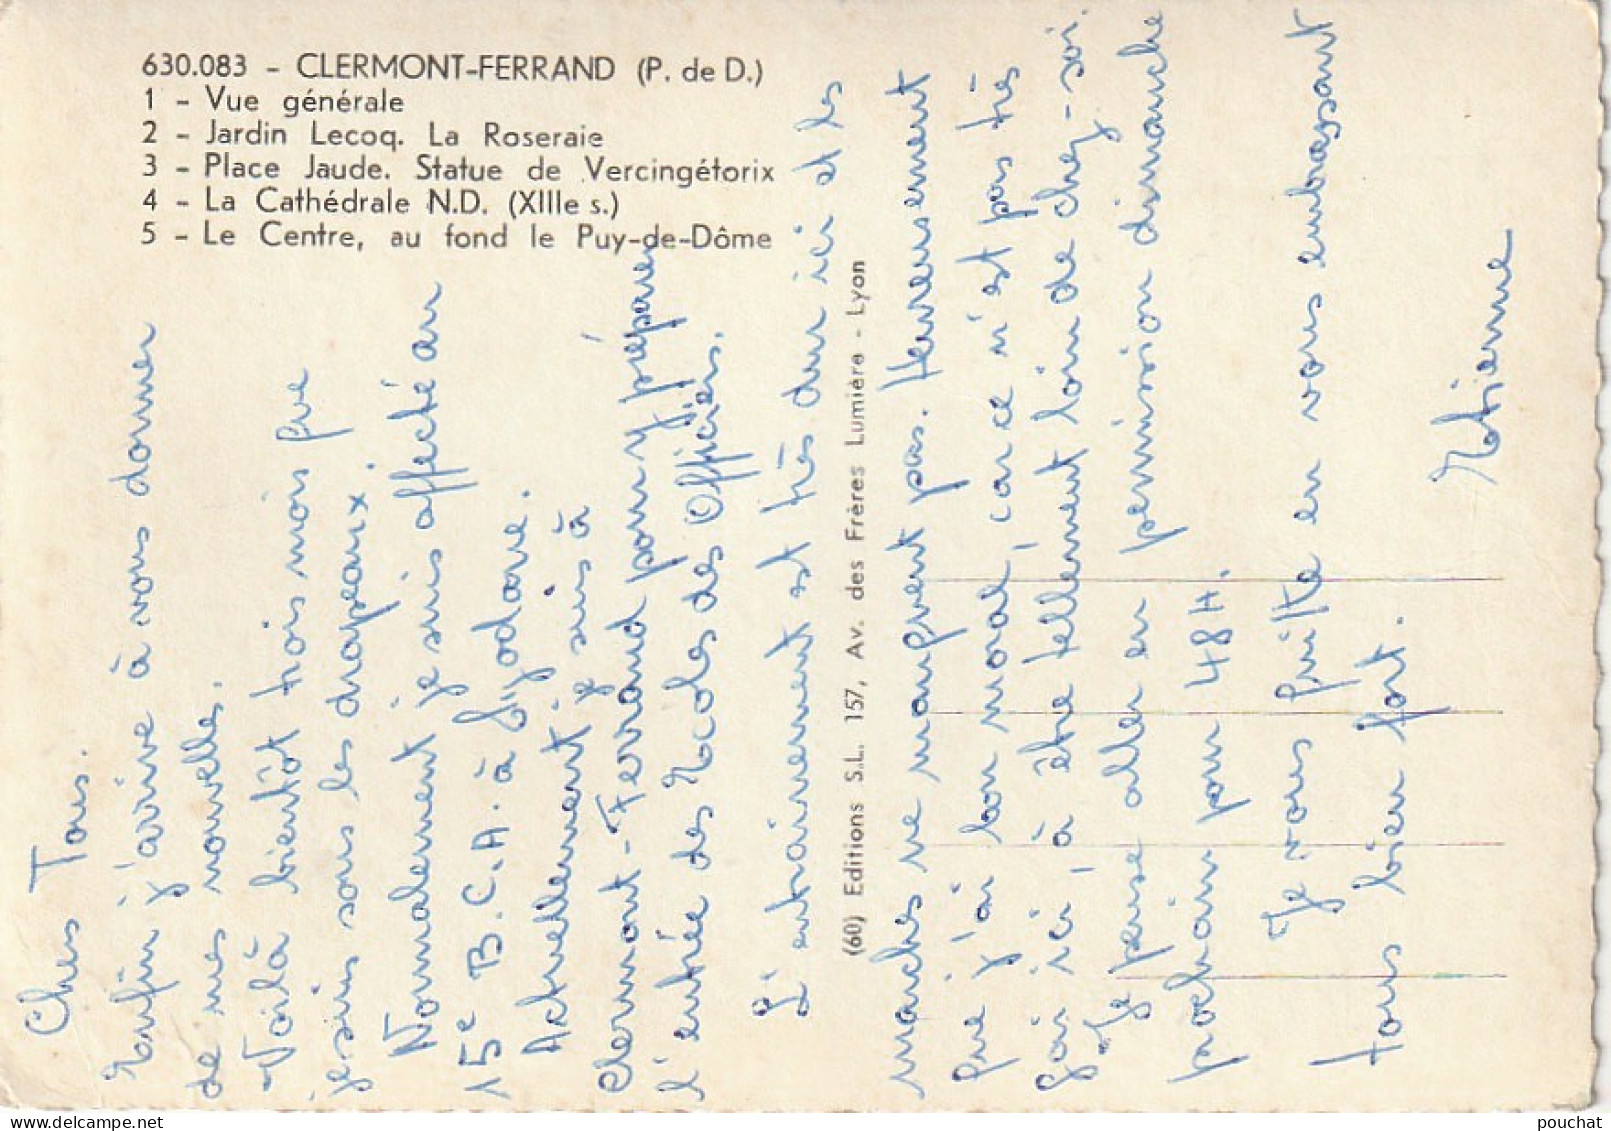 630.083 - CLERMONT-FERRAND (P. de D.)
1 - Vue générale
2 - Jardin Lecoq. La Roseraie
3 - Place Jaude. Statue de Vercingétorix
4 - La Cathédrale N.D. (XIIIe s.)
5 - Le Centre, au fond le Puy-de-Dôme
Chers Tous.
Enfin j'arrive à vous donner
de mes nouvelles.
Voilà bientôt trois mois que
je suis sous les drapeaux.
Normalement je suis affecté au
15e B.C.A. à
Actuellement je suis à
Clermont-Ferrand pour y préparer
l'entrée des Ecoles des Officiers.
L'entraînement est très dur ici et les
marches ne manquent pas. Heureusement
que j'ai bon moral, car ce n'est pas très
gai ici, à être tellement loin de chez-soi.
Je pense aller en permission dimanche
prochain pour 48H.
Je vous quitte en vous embrassant
tous bien fort.
Etienne
(60) Editions S.L. 157, Av. des Frères Lumière - Lyon
pouchat